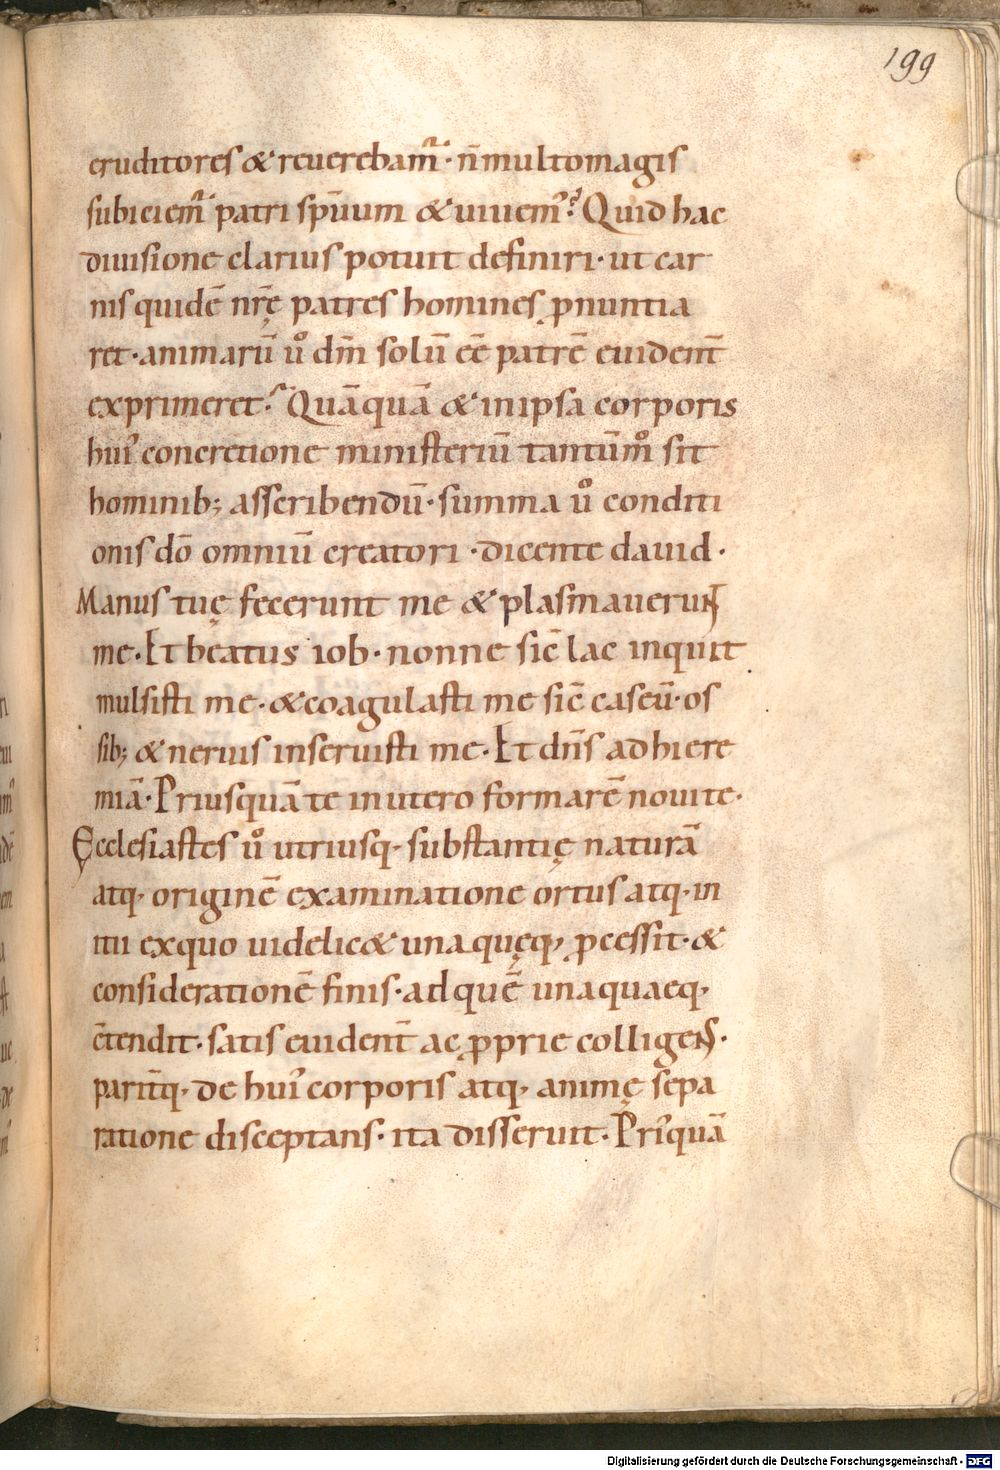 199
eruditores & reuerebam̃· n̄ multo magis
subiciem̃ patri sp̄uum & uiuem᷒? Quid hac
diuisione clarius potuit definiri· ut car
nis quidē nr̄ę patres homines ꝓnuntia
ret· animarū ů dm̄ solū eē patrē euident̄
exprimeret? Quāquā & in ipsa corporis
hui᷒ concretione ministeriū tantūm̊ sit
hominib; asscribendū· summa ů conditi
onis dō omniū creatori· dicente dauid·
Manus tuę fecerunt me & plasmauerunt
me· Et beatus iob· nonne sic̄ lac inquit
mulsisti me· & coagulasti me sic̄ caseū· os
sib; & neruis inseruisti me· Et dn̄s ad hiere
miā· Priusquā te in utero formarē noui te·
Ecclesiastes ů utriusq· substantię naturā
atq· originē examinatione ortus atq· in
itii ex quo uidelic& una quęq· ꝓcessit· &
considerationē finis· ad quē unaquaeq·
c̄tendit· satis euident̄ ac ꝓprie colligens·
parit̄q· de hui᷒ corporis atq· animę sepa
ratione disceptans· ita disseruit· Pri᷒quā
Digitalisierung gefördert durch die Deutsche Forschungsgemeinschaft - DFG